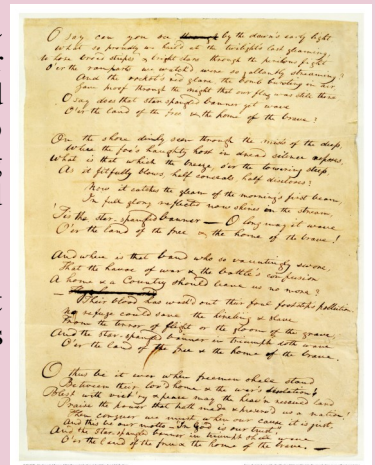 O say can you see by the dawn's early light
What so proudly we hail'd at the twilight's last gleaming,
Whose broad stripes & bright stars through the perilous fight
O'er the ramparts we watch'd were so gallantly streaming?
And the rocket's red glare, the bomb bursting in air
Gave proof through the night that our flag was still there
O say does that star-spangled banner yet wave
O'er the land of the free & the home of the brave?
On the shore dimly seen through the mists of the deep,
Where the foe's haughty host in dread silence reposes,
What is that which the breeze, o'er the towering steep,
As it fitfully blows, half conceals, half discloses?
Now it catches the gleam of the morning's first beam,
In full glory reflected now shines in the stream,
'Tis the star-spangled banner — O long may it wave
O'er the land of the free & the home of the brave!
And where is that band who so vauntingly swore,
That the havoc of war & the battle's confusion
A home & a Country should leave us no more?
Their blood has wash'd out their foul footsteps pollution.
No refuge could save the hireling & slave
From the terror of flight or the gloom of the grave,
And the star-spangled banner in triumph doth wave
O'er the land of the free & the home of the brave.
O thus be it ever when freemen shall stand
Between their lov'd home & the war's desolation!
Blest with vict'ry & peace may the heav'n rescued land
Praise the power that hath made & preserv'd us a nation!
Then conquer we must, when our cause it is just,
And this be our motto — In God is our trust,
And the star-spangled banner in triumph shall wave
O'er the land of the free & the home of the brave. —